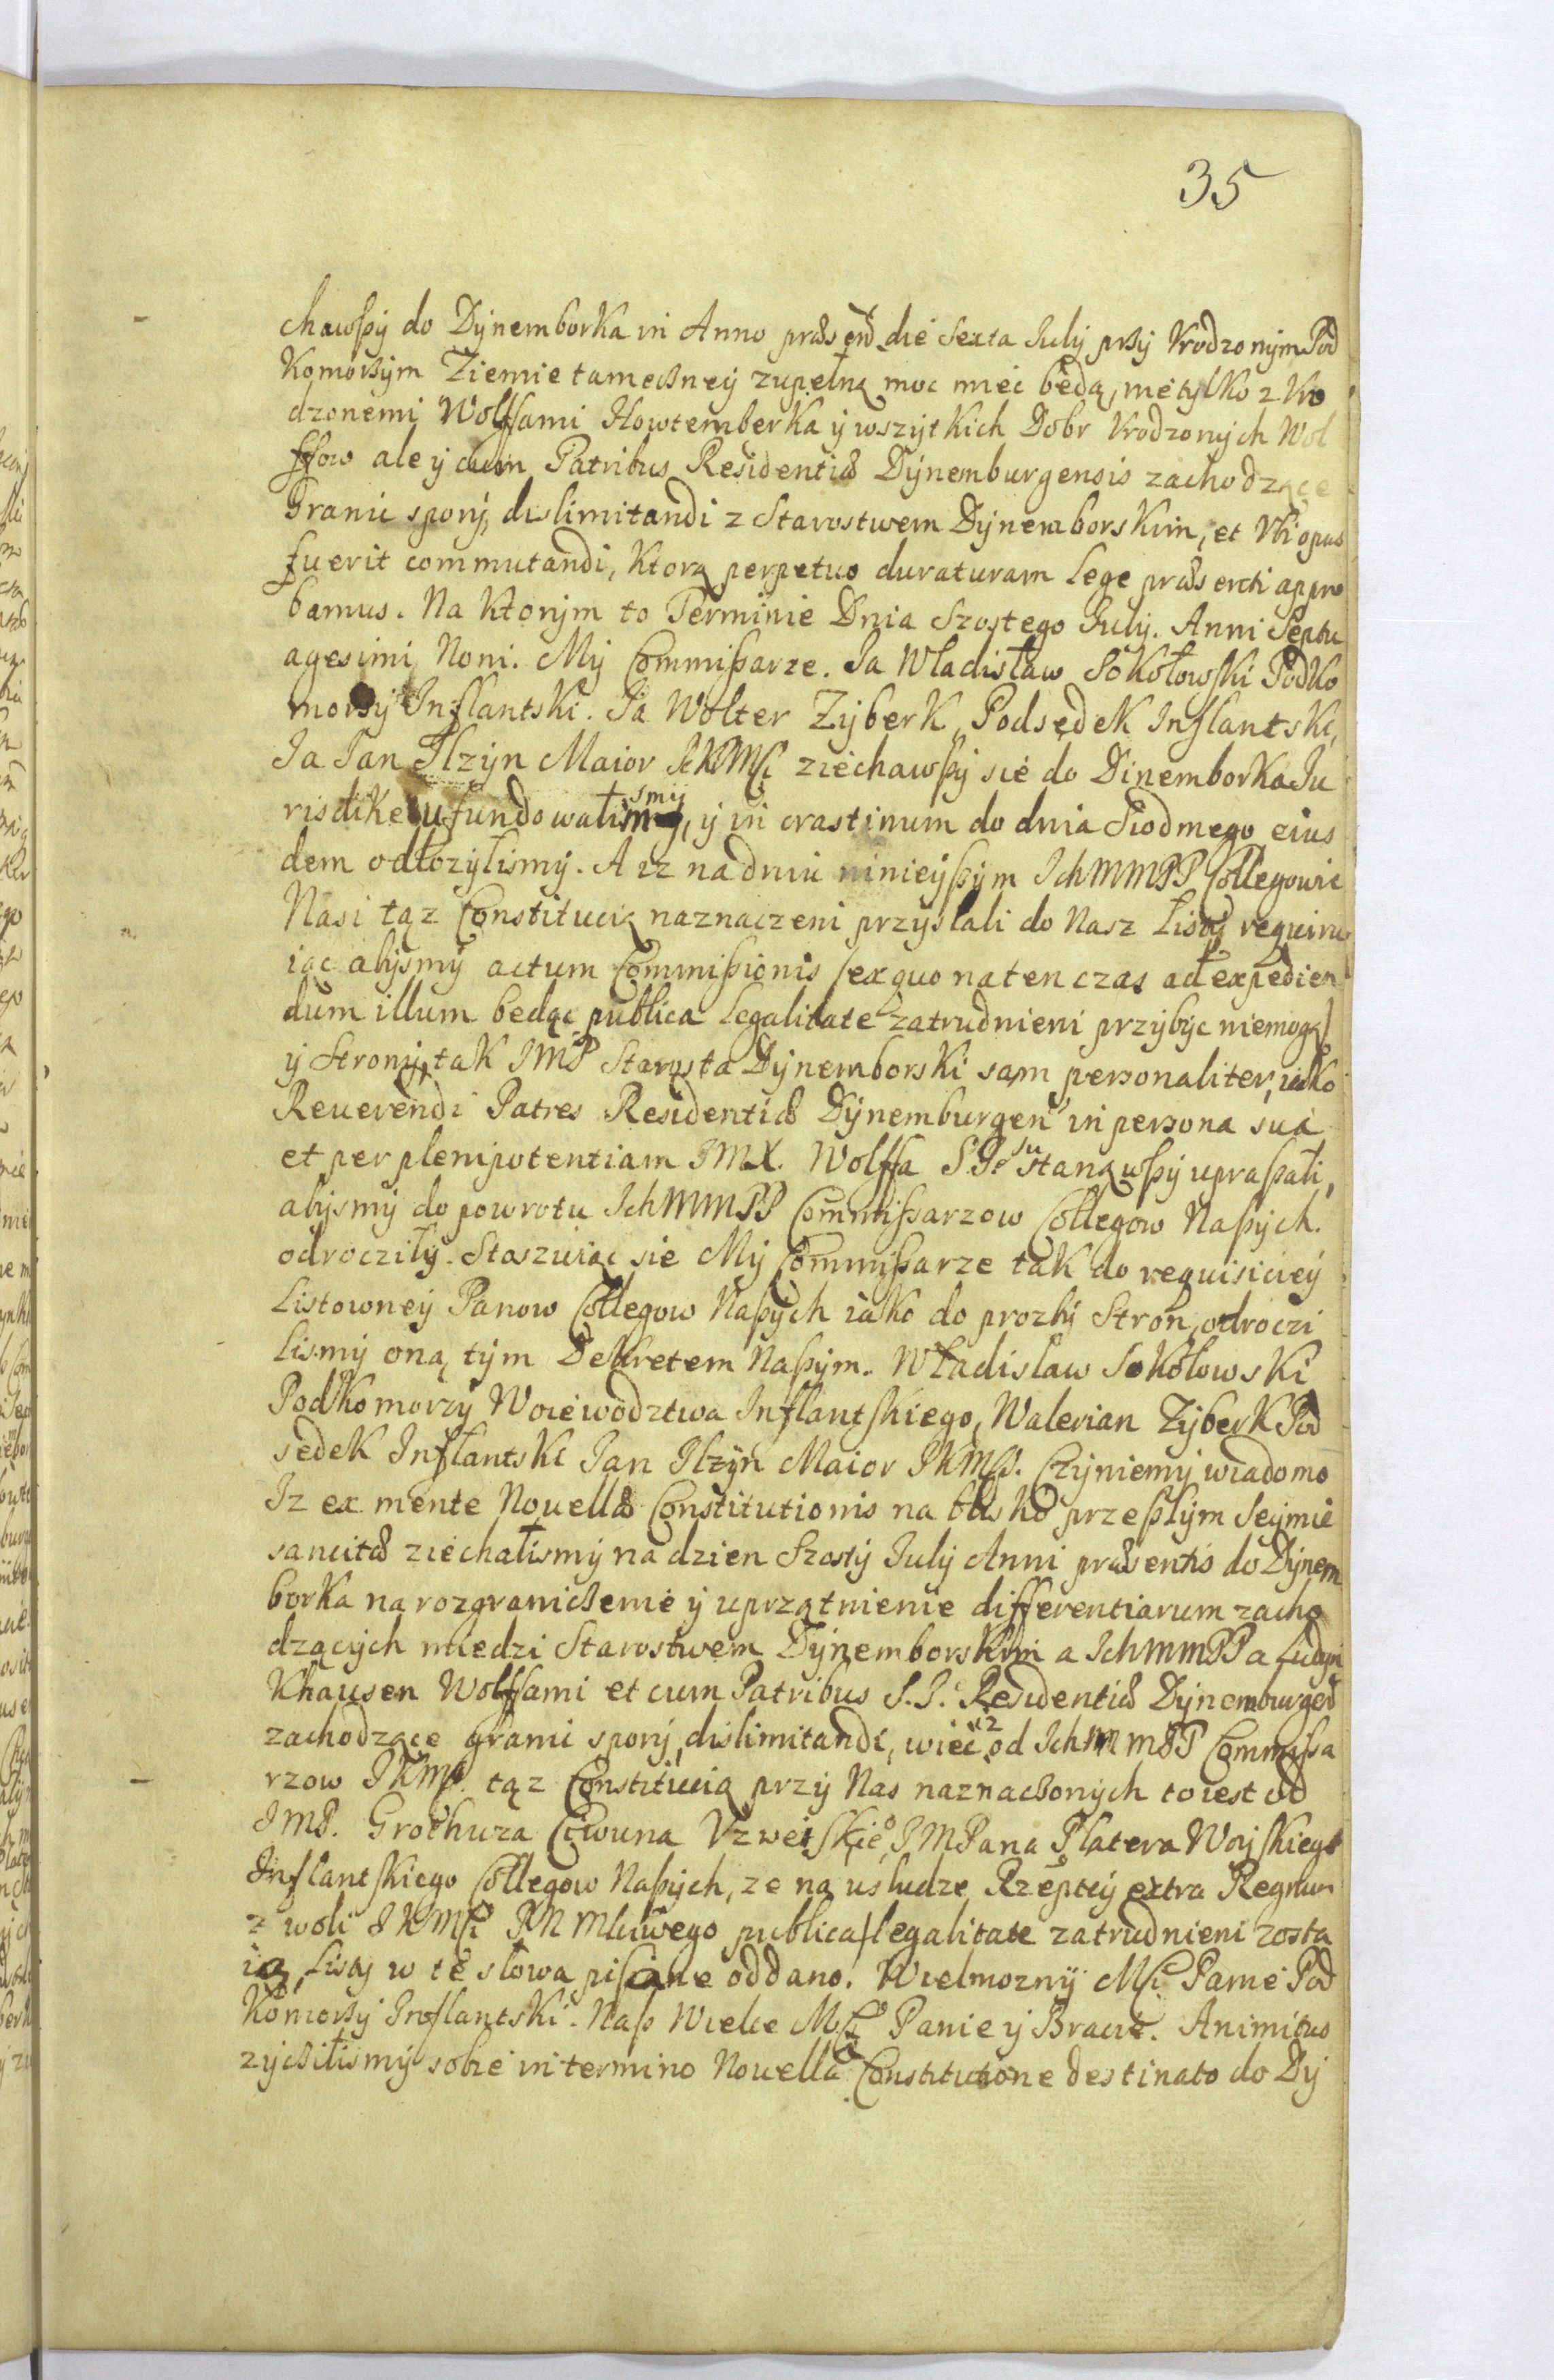 35
chawßy do Dynemborka in Anno præsend die Sexta July przy Vrodzonym Pod
Komorzym Ziemie tameczney zupełną moc mieć będą, nie tylko z Vro
dzonemi Wolffami Nowtemberka y wszytkich Dobr Vrodzonych Wol
ffow ale y cum Patribus Residentiæ Dynemburgensis zachodzące
Granic spory, dislimitandi z Starostwem Dynemborskim, et Vbi opus
fuerit commutandi, Ktorą perpetuo duraturam lege præsenti appro
bamus. Na Ktorym to Terminie Dnia Szostego July. Anni Septu
agesimi Noni. My Commißarze. Ja Władisław Sokołowski Podko
morzy Inflantski. Ja Wolter Zyberk Podsędek Inflantski,
Ja Jan Ilzyn Maior JKMści ziechawßy sie do Dinemborka Ju
risdike ufundowalismy, y in crastinum do dnia Siodmego eius
dem odłozylismy. A iz na dniu ninieyßym IchMMPP Collegowie
Nasi tąz Constitucią naznaczeni przysłali do Nasz Listy requiru
iąc abysmy actum Commißionis /ex quo na ten czas ad expedien
dum illum bedąc publica legalitate zatrudnieni przybyc niemogą/
y Strony, tak JMP Starosta Dynemborski sam personaliter, iako
Reuerendi Patres Residentiæ Dynemburgen in persona sua
et per plenipotentiam JMX. Wolffa S.J. stanąwßy upraßali,
abysmy do powrotu IchMMPP Commißarzow Collegow Naßych.
odroczily. Stoszuiąc sie My Commißarze tak do requisiciey
Listowney Panow Collegow Naßych iako do prozby Stron, odroczi
lismy oną tym Dekretem Naßym. Władislaw Sokołowski
Podkomorzy Woiewodztwa Inflantskiego, Walerian Zyberk Pod
sedek Inflantski Jan Ilzyn Maior JKMści. Czyniemy wiadomo
Iz ex mente Nouellæ Constitutionis na blisko przeßłym Seymie
sancitæ ziechalismy na dzien Szosty July Anni præsentis do Dynem
borka na rozgraniczenie y uprzątnienie differentiarum zacho
dzących miedzi Starostwem Dynemborskim a IchMMPPa Ludyn
Khausen Wolffami et cum Patribus S.J. Residentiæ Dynemburgen
zachodzące granic spory, dislimitandi, wiec iz od IchMMPP Commißa
rzow JKMści. tąz Constitucią przy Nas naznaczonych to iest od
JMP. Grothuza Ciwuna Vzweiskie, JMPana Platera Woyskiego
Inflantskiego Collegow Naßych, ze na usłudze Rzeptey extra Regnum
z woli JKMści PN Mciwego publica legalitate zatrudnieni zosta
ią, Listy w te słowa pisane oddano. Wielmozny Mści Panie Pod
Komorzy Inflantski. Naß Wielce Mści Panie y Bracie. Animitus
zyczilismy sobie in termino Nouella Constitutione destinato do Dy